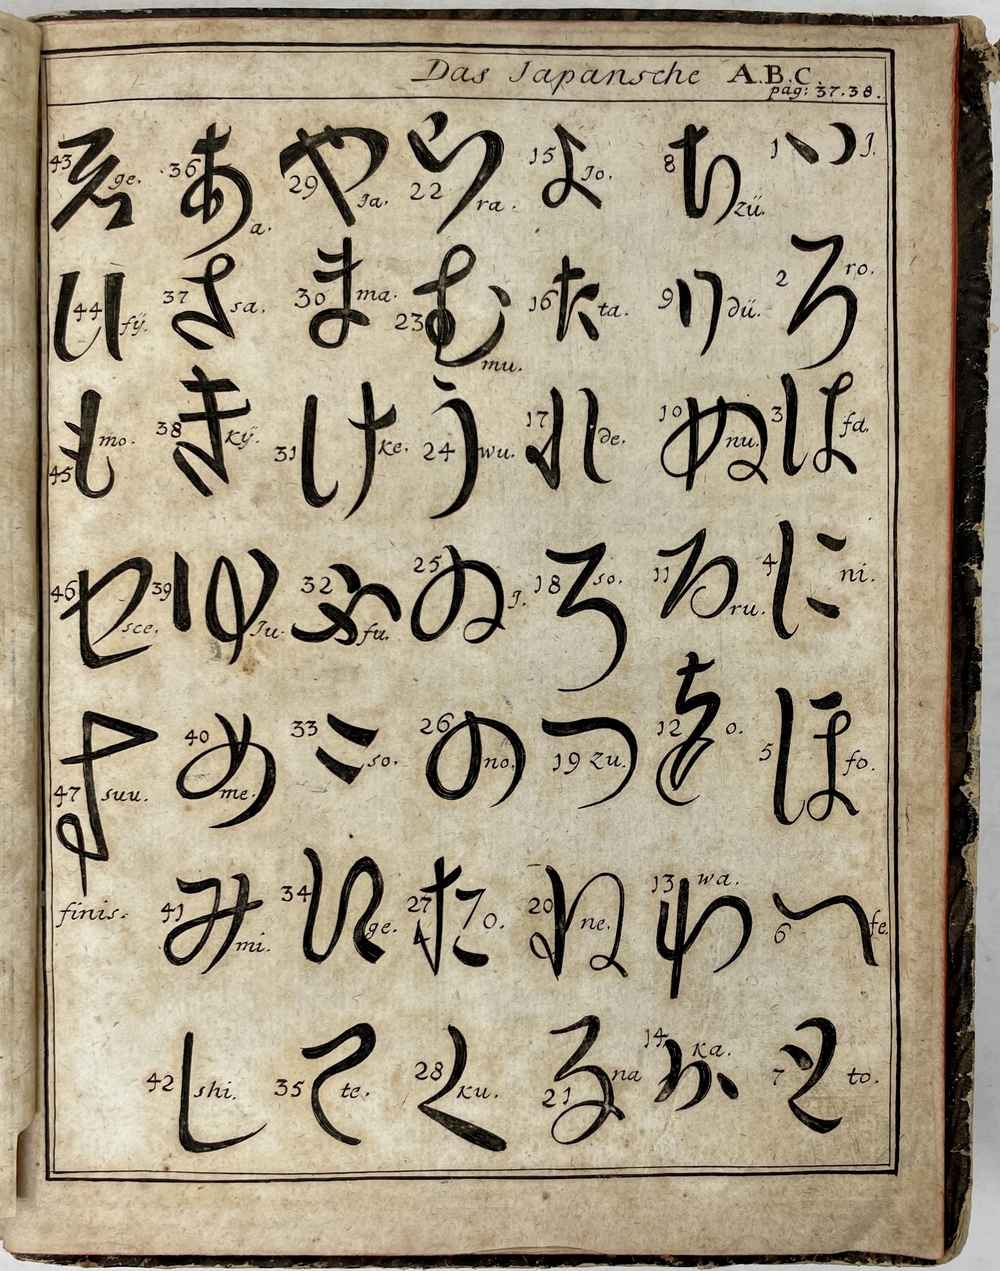 Das Japansche A.B.C.
pag: 37.38.
1 い J.
2 ろ ro.
3 は fa.
4 に ni.
5 ほ fo.
6 へ fe.
7 と to.
8 ち zü.
9 り dü.
10 ぬ nu.
11 る ru.
12 を o.
13 わ wa.
14 か ka.
15 よ Jo.
16 た ta.
17 れ de.
18 そ so.
19 つ zu.
20 ね ne.
21 な na
22 ら ra.
23 む mu.
24 う wu.
25 ゐ J.
26 の no.
27 お o.
28 く ku.
29 や Ja.
30 ま ma.
31 け ke.
32 ふ fu.
33 こ so.
34 え ge.
35 て te.
36 あ a.
37 さ sa.
38 き kÿ.
39 ゆ Ju.
40 め me.
41 み mi.
42 し shi.
43 ゑ ge.
44 ひ fÿ.
45 も mo.
46 せ sce.
47 す suu.
finis.